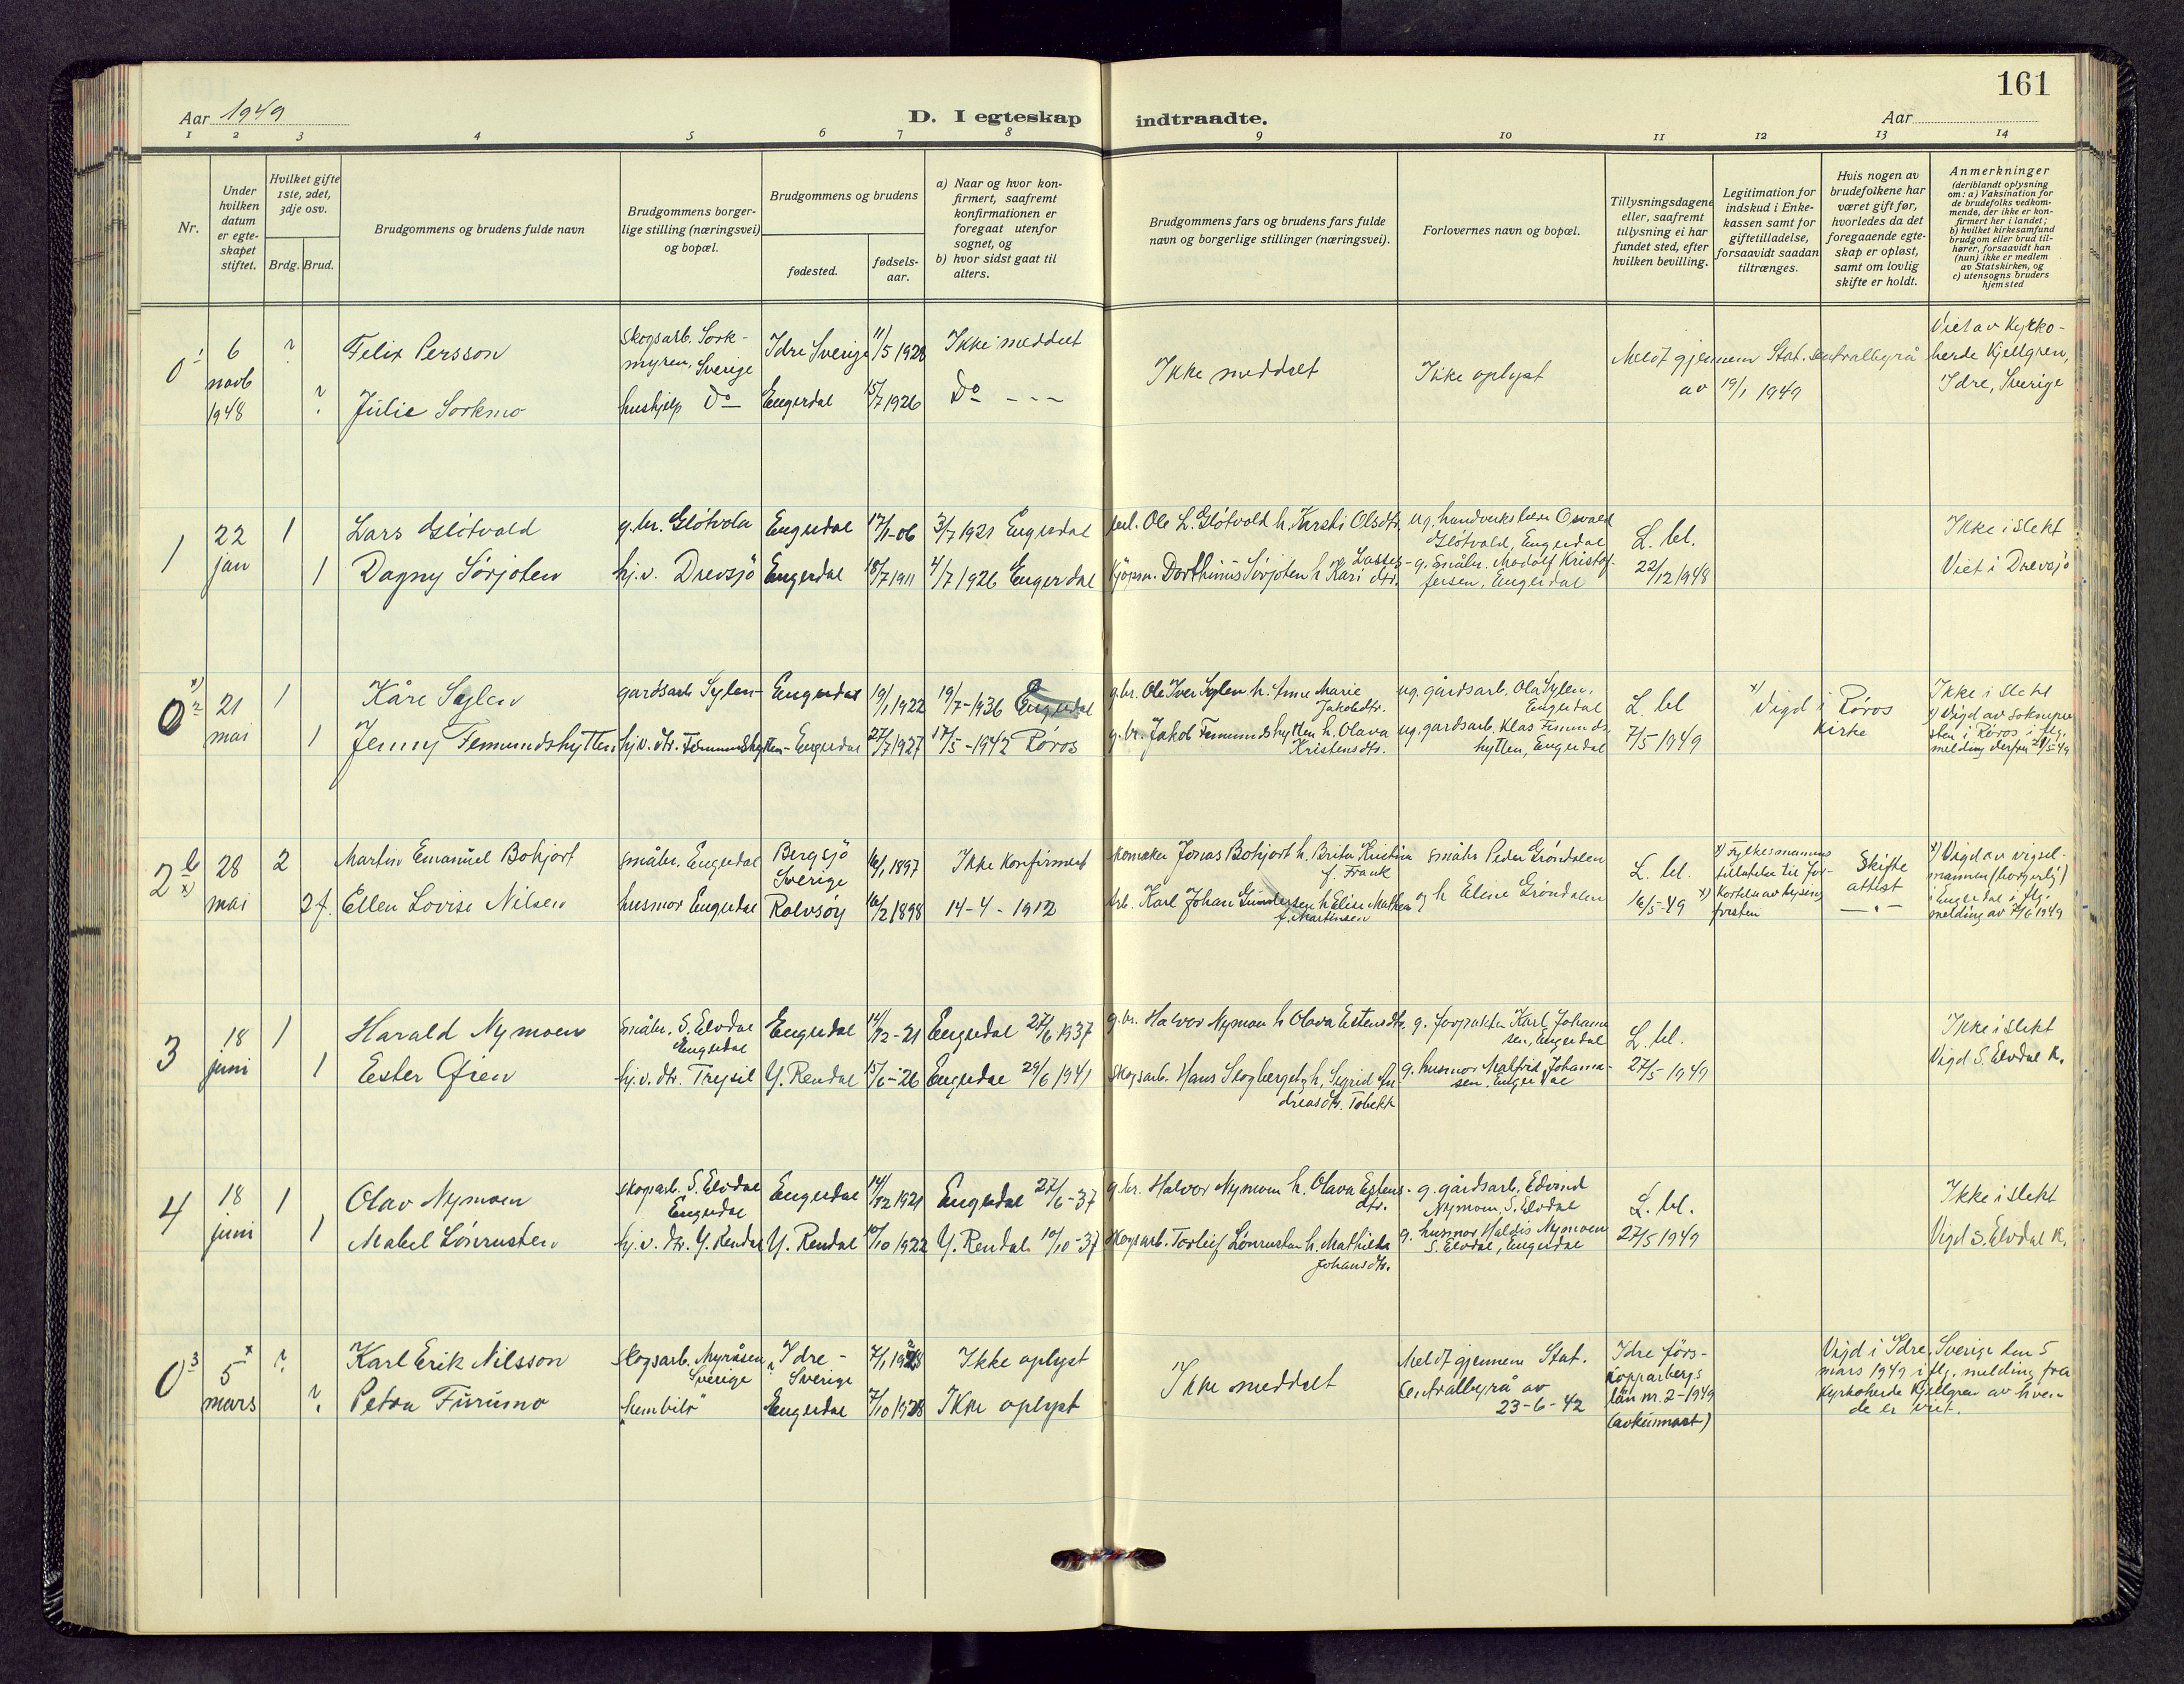 161
Aar 1949
D. I egteskap indtraadte.
Aar
1 2 3 4 5 6 7 8 9 10 11 12 13 14
Nr.
Under hvilken datum er egteskapet stiftet.
Hvilket gifte 1ste, 2det, 3dje osv.
Brdg. Brud.
Brudgommens og brudens fulde navn
Brudgommens borgerlige stilling (næringsvei) og bopæl.
Brudgommens og brudens
fødested.
fødselsaar.
a) Naar og hvor konfirmert, saafremt konfirmationen er foregaat utenfor sognet, og
b) hvor sidst gaat til alters.
Brudgommens fars og brudens fars fulde navn og borgerlige stillinger (næringsvei).
Forlovernes navn og bopæl.
Tillysningsdagene eller, saafremt tillysning ei har fundet sted, efter hvilken bevilling.
Legitimation for indskud i Enkekassen samt for giftetilladelse, forsaavidt saadan tiltrænges.
Hvis nogen av brudefolkene har været gift før, hvorledes da det foregaaende egteskap er opløst, samt om lovlig skifte er holdt.
Anmerkninger
(deriblandt oplysning om: a) Vaksination for de brudefolks vedkommende, der ikke er konfirmert her i landet; b) hvilket kirkesamfund brudgom eller brud tilhører, forsaavidt han (hun) ikke er medlem av Statskirken, og c) utensogns bruders hjemsted
0 1 6 novb 1948 ? Felix Persson Skogsarb. Sorkmyren, Sverige Idre Sverige 11/5 1928 Ikke meddelt
? Julie Sorkmo hushjelp Do Engerdal 15/7 1926 Do - - -
Ikke meddelt Ikke oplyst
Meldt gjennem Stat. sentralbyrå av 19/1 1949
Viet av Kyrkoherde Kjellgren, Idre, Sverige
1 22 jan 1 Lars Gløtvold g.br. Gløtvola Engerdal 17/1-06 3/7 1921 Engerdal
1 Dagny Sørjoten hj.v. Drevsjø Engerdal 18/7 1911 4/7 1926 Engerdal
Ole L. Gløtvold h. Kirsti Olsdtr. ug. Osvald Gløtvold, Engerdal
Kjøpm. Dorthinus Sørjoten h. Kari Lassesdtr. g. småbr. Modolf Kristoffersen, Engerdal
L. bl. 22/12 1948
Ikke i slekt
Viet i Drevsjø
0 2 x) 21 mai 1 Kåre Sylen gardsarb Sylen- Engerdal 19/1 1922 19/7-1936 Engerdal
1 Jenny Femundshytten hj.v. dtr. Femundshytten- Engerdal 27/7 1927 17/5-1942 Røros
g.br. Ole Iver Sylen h. Marie Jakobdtr. ug. gårdsarb. Ola Sylen, Engerdal
g.br. Jakob Femundshytten h. Olava Kristensdtr. ug. gardsarb. Klas Femundshytten, Engerdal
L. bl 7/5 1949
x) Vigd i Røros Kirke
Ikke i slekt
x) Vigd av soknepresten i Røros i flg. melding derfra 21/5-49
2 b x) 28 mai 2 Martin Emanuel Bohjort småbr. Engerdal Bergsjö Sverige 16/1 1897 Ikke konfirmert
2 f. Ellen Lovise Nilsen husmor Engerdal Rolvsøy 16/2 1898 14-4-1912
Skomaker Jonas Bohjort h. Brita Kristina f. Frank småbr Peder Grøndalen
arb. Karl Johan Gundersen h Elise Mathea f. Martinsen og h Eline Grøndalen
L. bl. 16/5-49
x) Fylkesmannens tillatelse til
Skifte attest
x) Vigd av vigselmannen (borgerlig) i Engerdal i flg. melding av 7/6 1949
3 18 juni 1 Harald Nymoen småbr. S. Elvdal Engerdal Engerdal 14/12-21 Engerdal 27/6 1937
1 Ester Øien hj.v. dtr. Trysil Y. Rendal 15/6-26 Engerdal 29/6 1941
g.br. Halvor Nymoen h Olava Estensdtr. g. forpakter Karl Johansen, Engerdal
Skogsarb. Hans Skogberget h. Sigrid Andreasdtr. Tobekk g. husmor Malfrid Johansen, Engerdal
L. bl. 27/5-1949
Ikke i slekt
Vigd S. Elvdal k.
4 18 juni 1 Olav Nymoen skogarb. S. Elvdal Engerdal Engerdal 14/12 1921 Engerdal 27/6-37
1 Mabel Lønrusten hj.v. dtr. Y. Rendal Y. Rendal 10/10 1922 Y. Rendal 10/10-37
g.br. Halvor Nymoen h. Olava Estensdtr. g. gårdsarb. Edvind Nymoen, S. Elvdal
Skogsarb. Torleif Lønrusten h. Mathilda Johansdtr. g. husmor Haldis Nymoen S. Elvdal, Engerdal
L. bl. 27/5 1949
Ikke i slekt
Vigd S. Elvdal k.
0 3 5 x mars ? Karl Erik Nilsson skogsarb. Myråsen Sverige Idre - Sverige 7/1 1928 Ikke oplyst
? Petra Furumo Engerdal 7/10 1928 Ikke oplyst
Ikke meddelt
Meldt gjennem Stat. Centralbyrå av 23-6-42
Idre förs- Kopparbergs län nr. 2-1949
Vigd i Idre, Sverige den 5 mars 1949 i flg. melding fra Kyrkoherde Kjellgren av hvem de er viet.